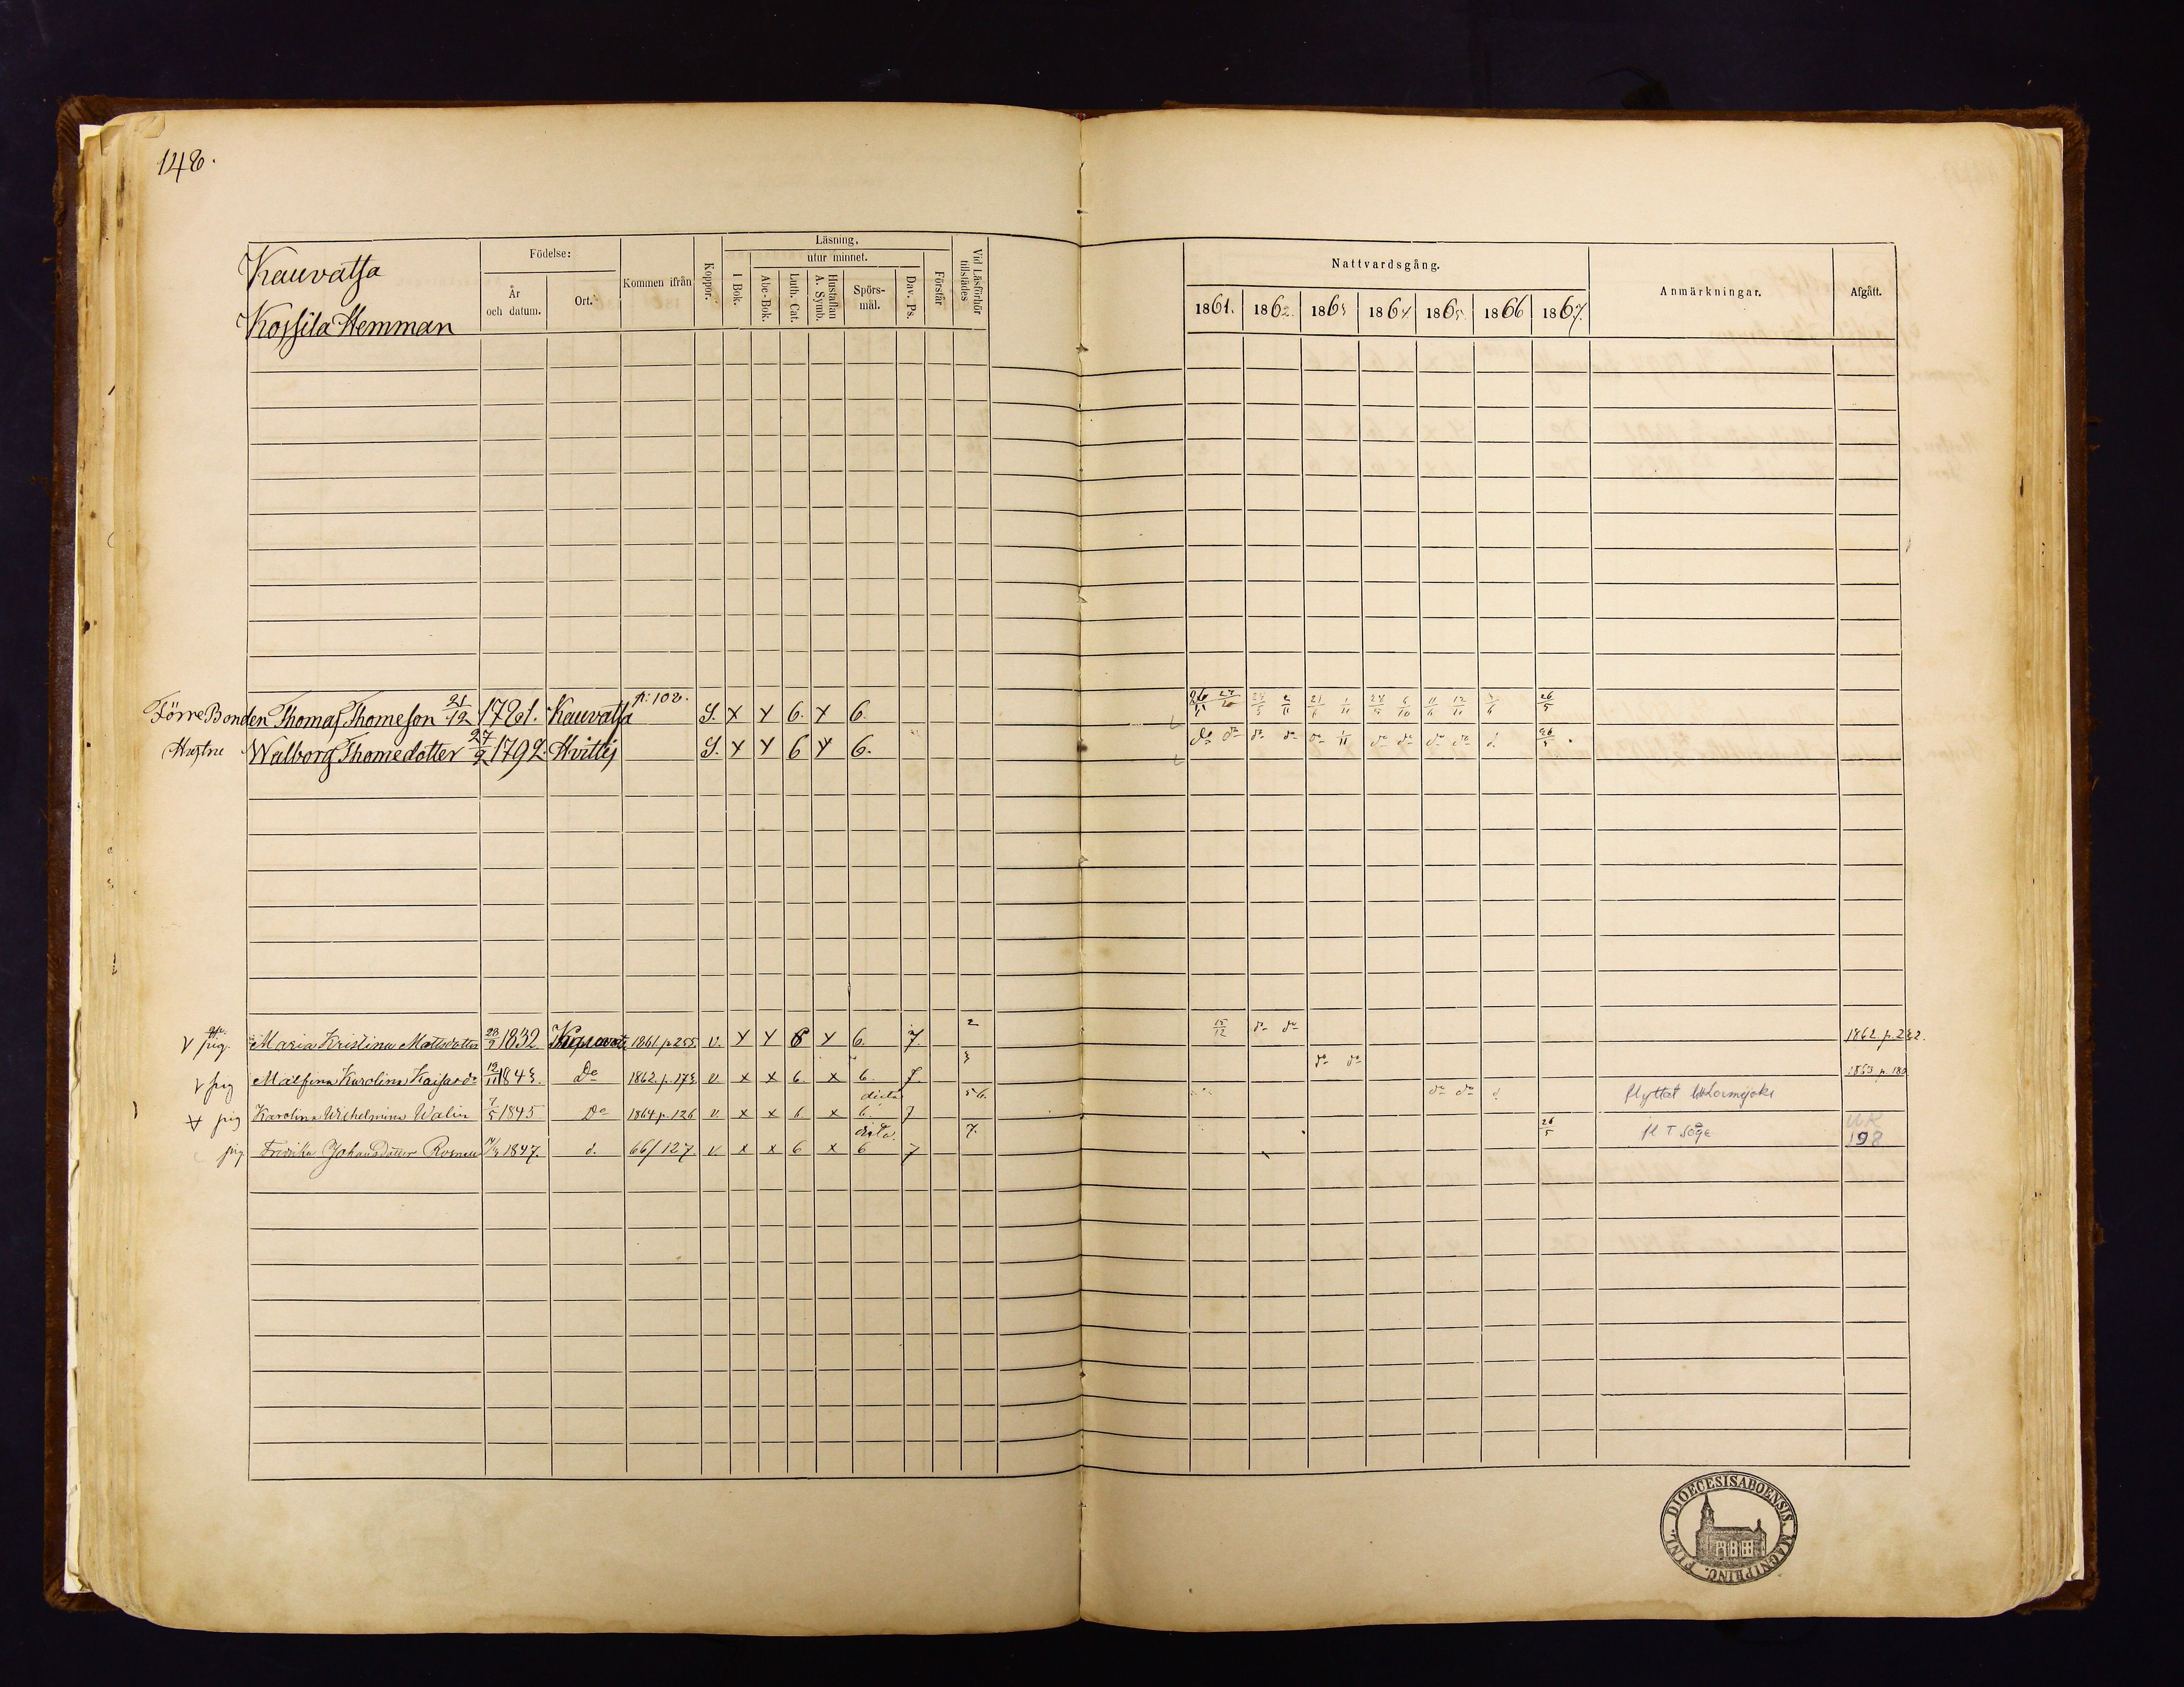 148.
Kauvatsa
Kossila Hemman
Födelse:
År och datum.
Ort.
Kommen ifrån
Koppor.
Läsning,
I Bok.
utur minnet.
Abc-Bok.
Luth. Cat.
Hustaflan A. Symb.
Spörs-mål.
Dav. Ps.
Förstår
Vid Läsförhör tillstädes
Nattvardsgång.
1861. 1862. 1863 1864 1865. 1866 1867.
Anmärkningar.
Afgått.
Förre Bonden Thomas Thomeson 21/12 1781. Kauvatsa p. 108. S. x x 6. x 6. 26/5
Hustru Walborg Thomedotter 27/9 1792. Hvittis S. x x 6 x 6. do do do do do do do do do d. 26/5
pig. Maria Kristina Mattsdotter 28/7 1832 Kauvatsa 1861 p. 255 v. x x 6 x 6. 7. 2 15/12 do do 1862. p. 232.
pig Karolina Kaisasdr 12/11 1843. Do 1862. p. 173. v x x 6. x 6. 7. 3 do do 1863 p. 180
pig Karolina Wilhelmina Walin 7/5 1845 Do 1864 p. 126 v. x x 6 x dito 6. 7 5 6. do do d. flyttat Loimijoki
pig Fredrika Johansdotter 1847. d. 66/127 v x x 6 x dito. 6 7 7. 26/5 fl T 198
DIOECESIS ABOENSIS. MAGNI PRINC. FINL.